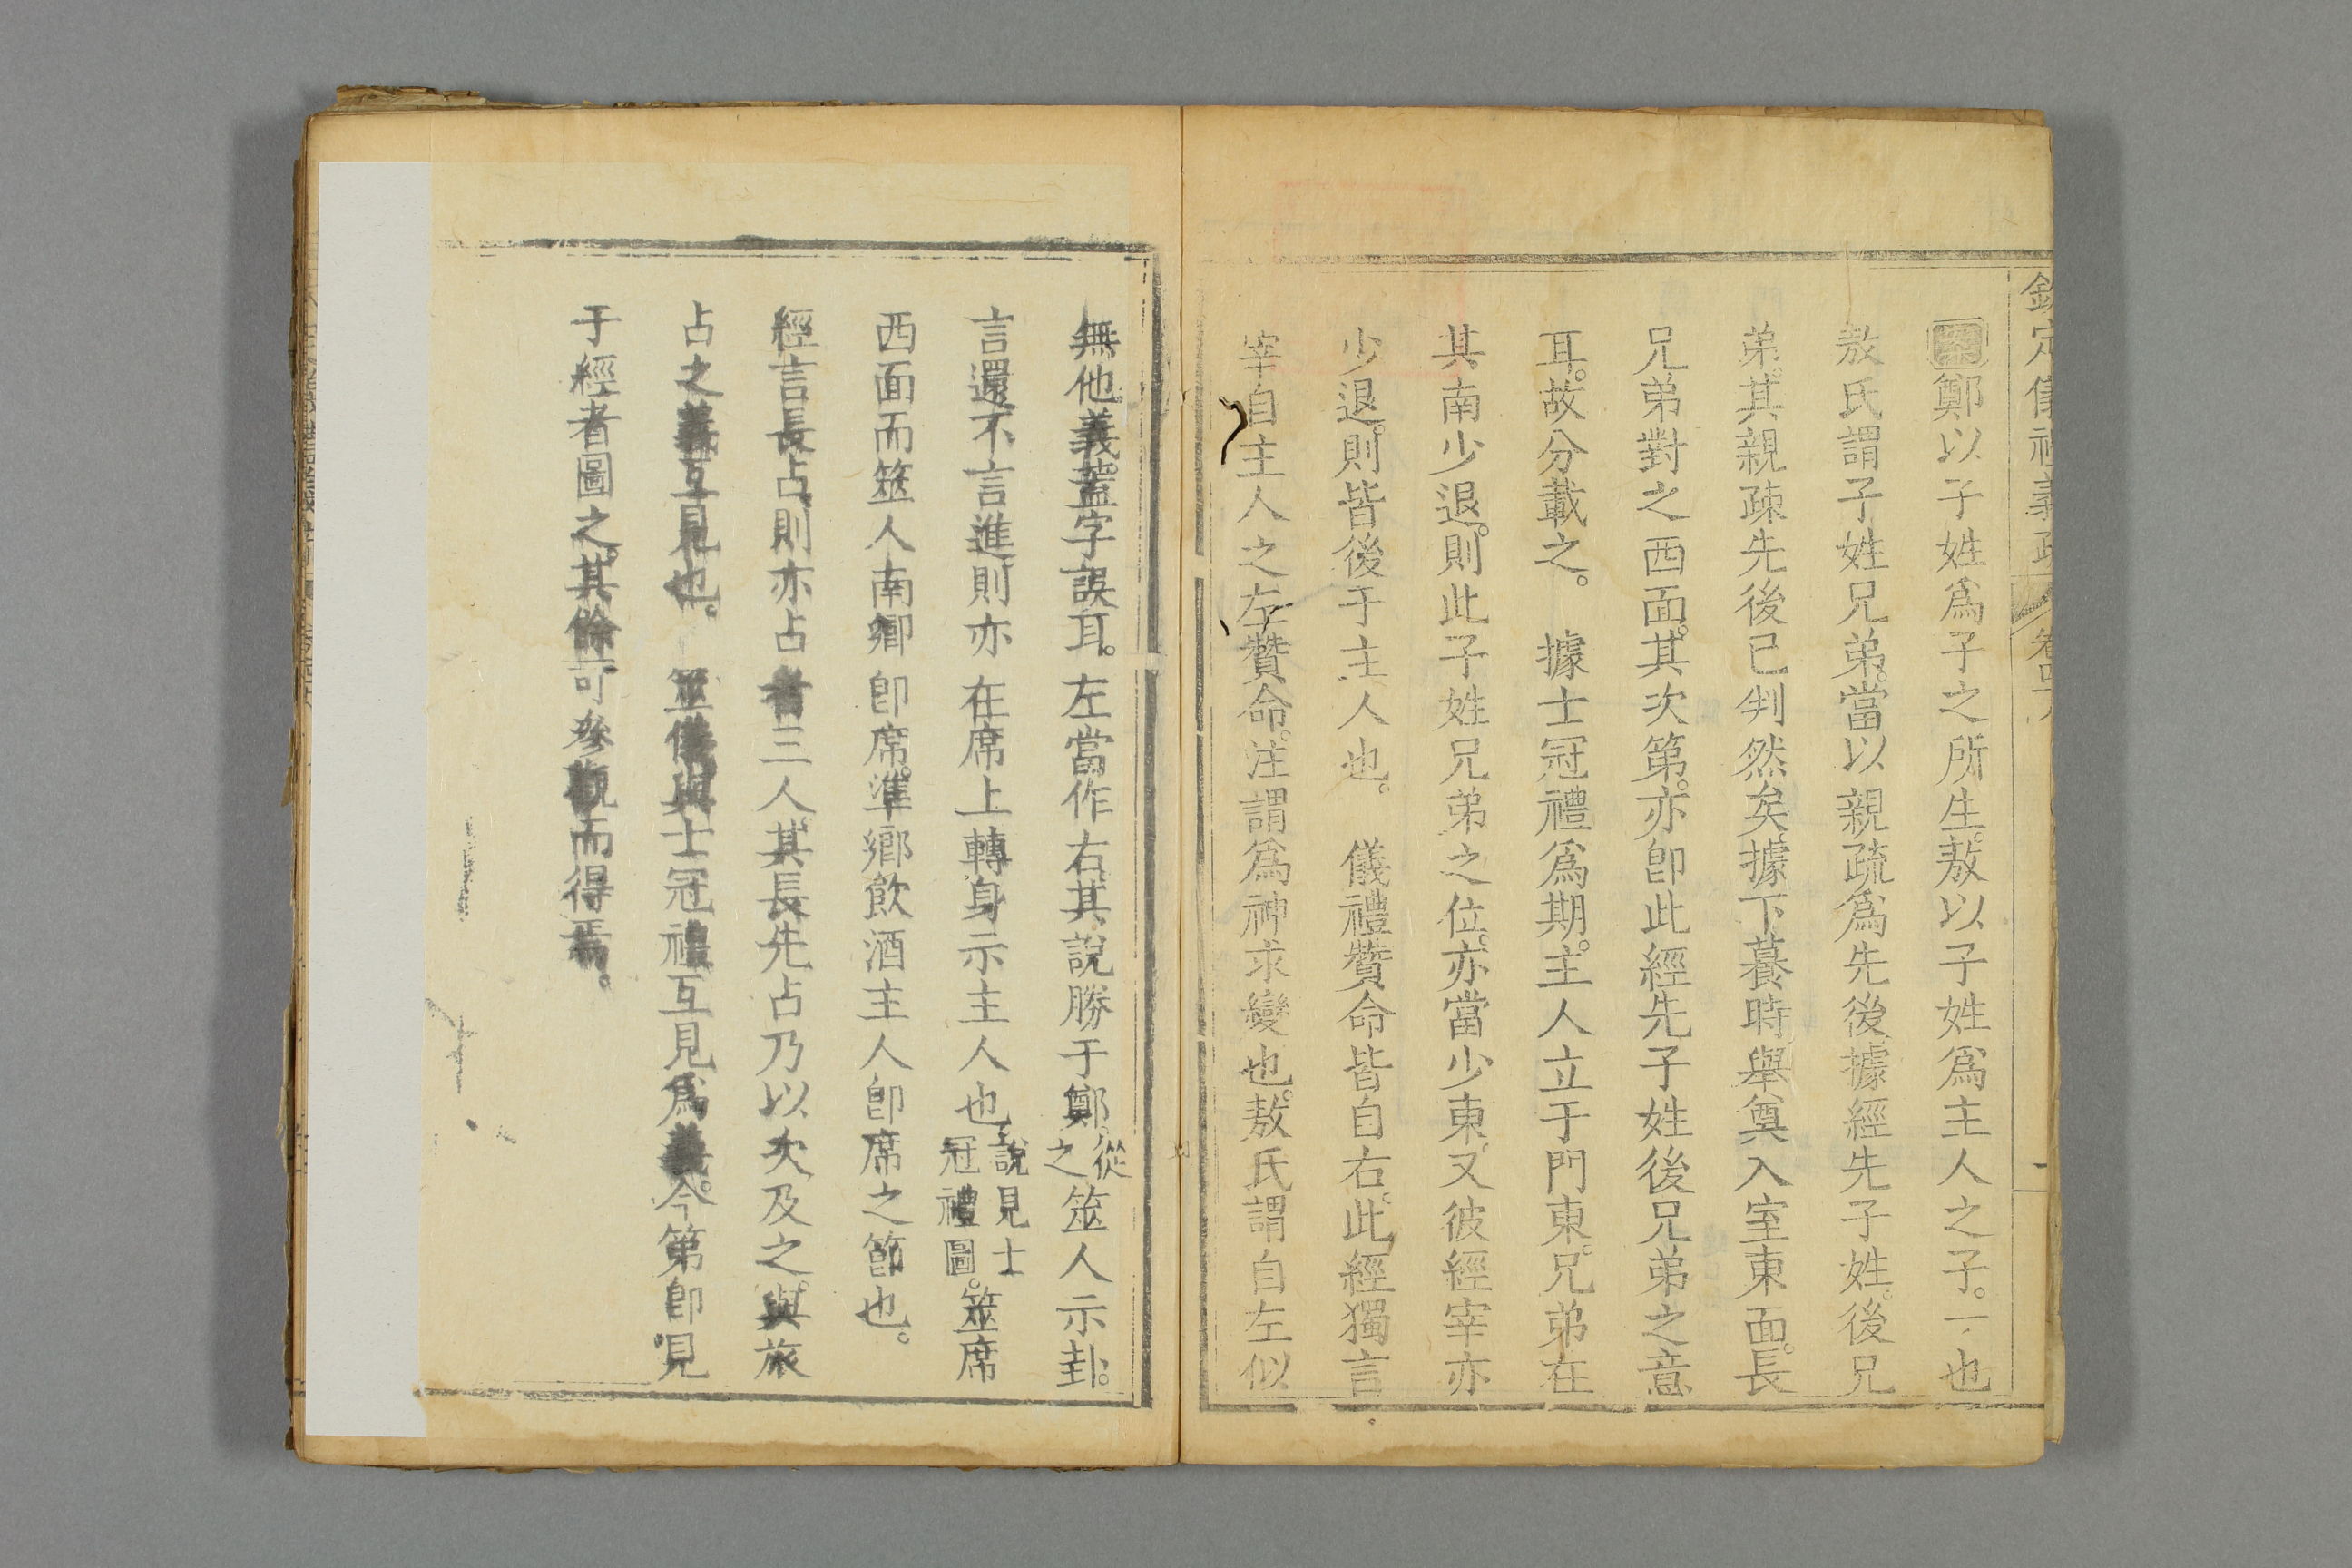 欽定儀禮義疏 卷四十八
案鄭以子姓爲子之所生。敖以子姓爲主人之子。一也
敖氏謂子姓兄弟。當以親疏爲先後。據經先子姓。後兄
弟。其親疎先後已判然矣。據下養時。舉奠入室東面。長
兄弟對之西面。其次第。亦卽此經先子姓後兄弟之意
耳。故分載之。 據士冠禮爲期。主人立于門東。兄弟在
其南少退。則此子姓兄弟之位。亦當少東。又彼經宰亦
少退。則皆後于主人也。 儀禮贊命皆自右。此經獨言
宰自主人之左贊命。注謂爲神求變也。敖氏謂自左似
無他義。蓋字誤耳。左當作右。其說勝于鄭。從之 筮人示卦。
言還不言進。則亦在席上轉身示主人也 說見士冠禮圖。筮席
西面而筮人南鄉卽席。準鄉飲酒主人卽席之節也。
經言長占。則亦占者三人。其長先占。乃以次及之。與旅
占之義互見也。 筮儀與士冠禮互見爲義。今第卽見
于經者圖之。其餘可參觀而得焉。